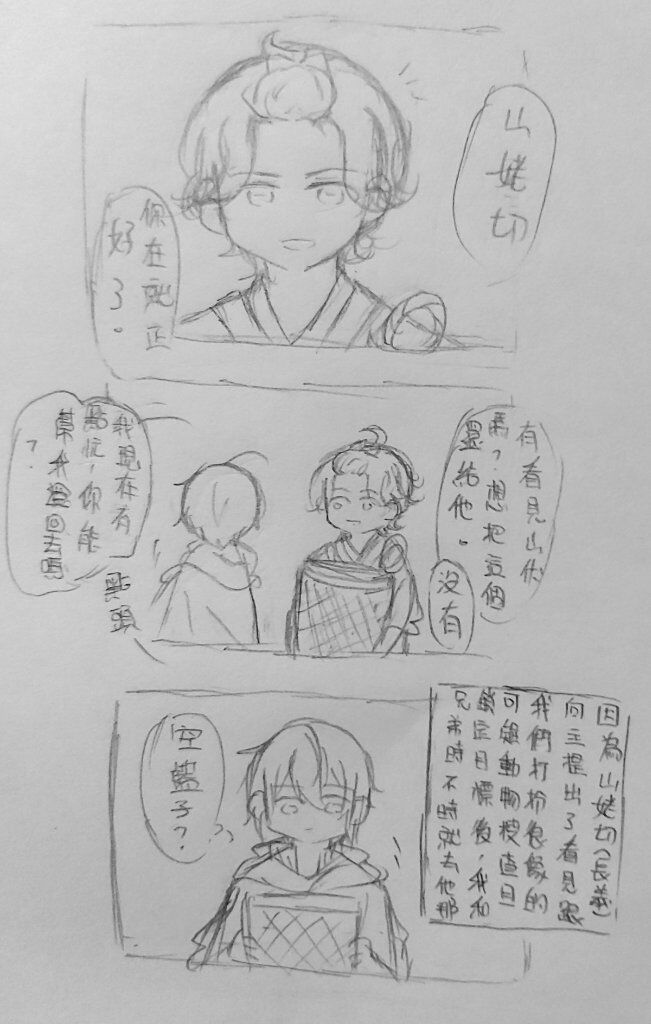 山姥切
你在就正
好了。
有看見山伏
嗎?想把這個
還給他。
沒有
我現在有
點忙,你能
幫我還回去嗎
?
點頭
因為山姥切(長義)
向主提出了看見跟
我們打扮很像的
可疑動物搜查且
鎖定目標後,我和
兄弟時不時就去他那
空籃子?